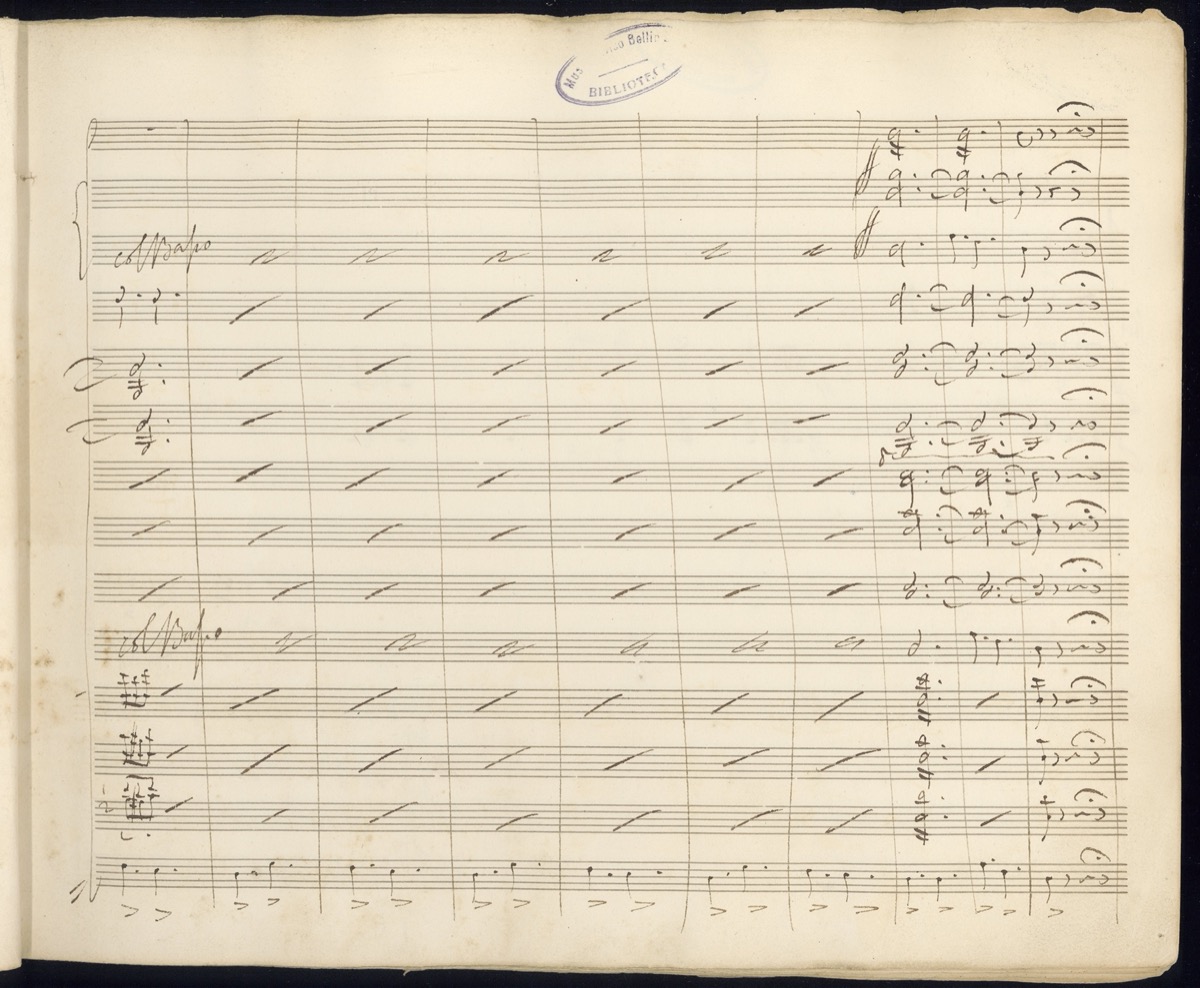 Bellin
BIBLIOTECA
col Basso
col Basso